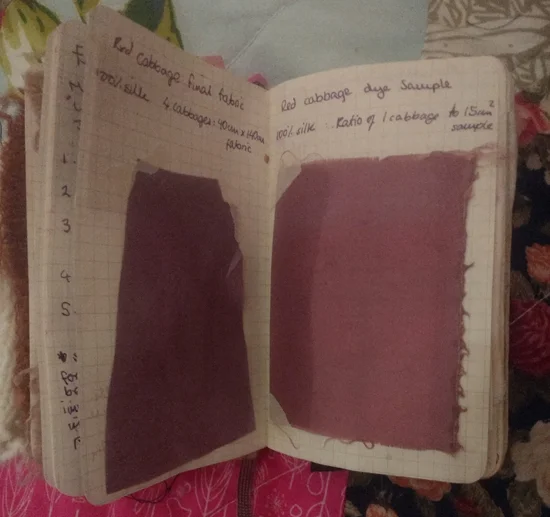 Red Cabbage Final fabric
100% silk 4 cabbages: 40cm x 140cm
fabric
Red cabbage dye Sample
100% silk : Ratio of 1 cabbage to 15cm²
sample
1
2
3
4
5